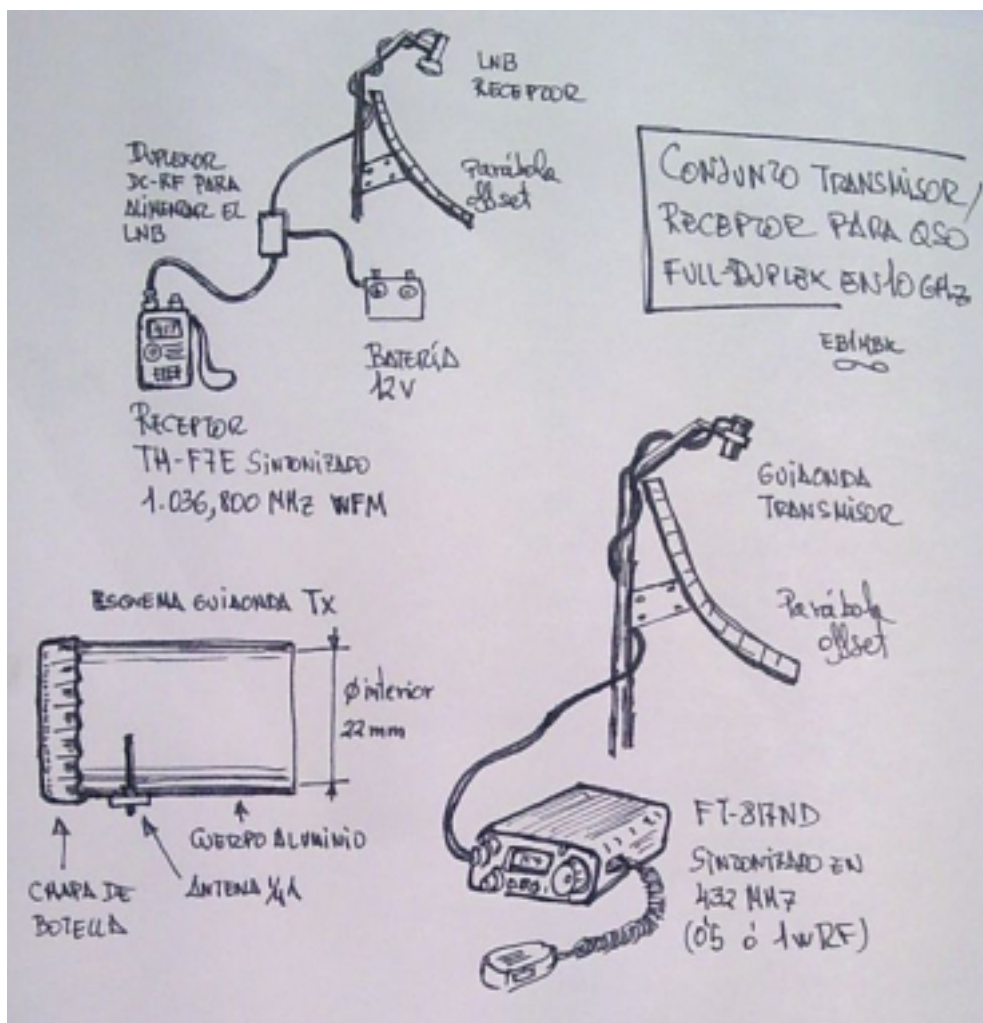 LNB
RECEPTOR
DUPLEXOR
DC-RF PARA
ALIMENTAR EL
LNB
Parábola
offset
CONJUNTO TRANSMISOR/
RECEPTOR PARA QSO
FULL-DUPLEX EN 10 GHz
EB1HBK
BATERÍA
12V
RECEPTOR
TH-F7E SINTONIZADO
1.036,800 MHz WFM
GUIAONDA
TRANSMISOR
Parábola
offset
ESQUEMA GUIAONDA TX
Ø interior
22 mm
CUERPO ALUMINIO
CHAPA DE
BOTELLA
ANTENA ¼λ
FT-817ND
SINTONIZADO EN
432 MHz
(0'5 ó 1W RF)